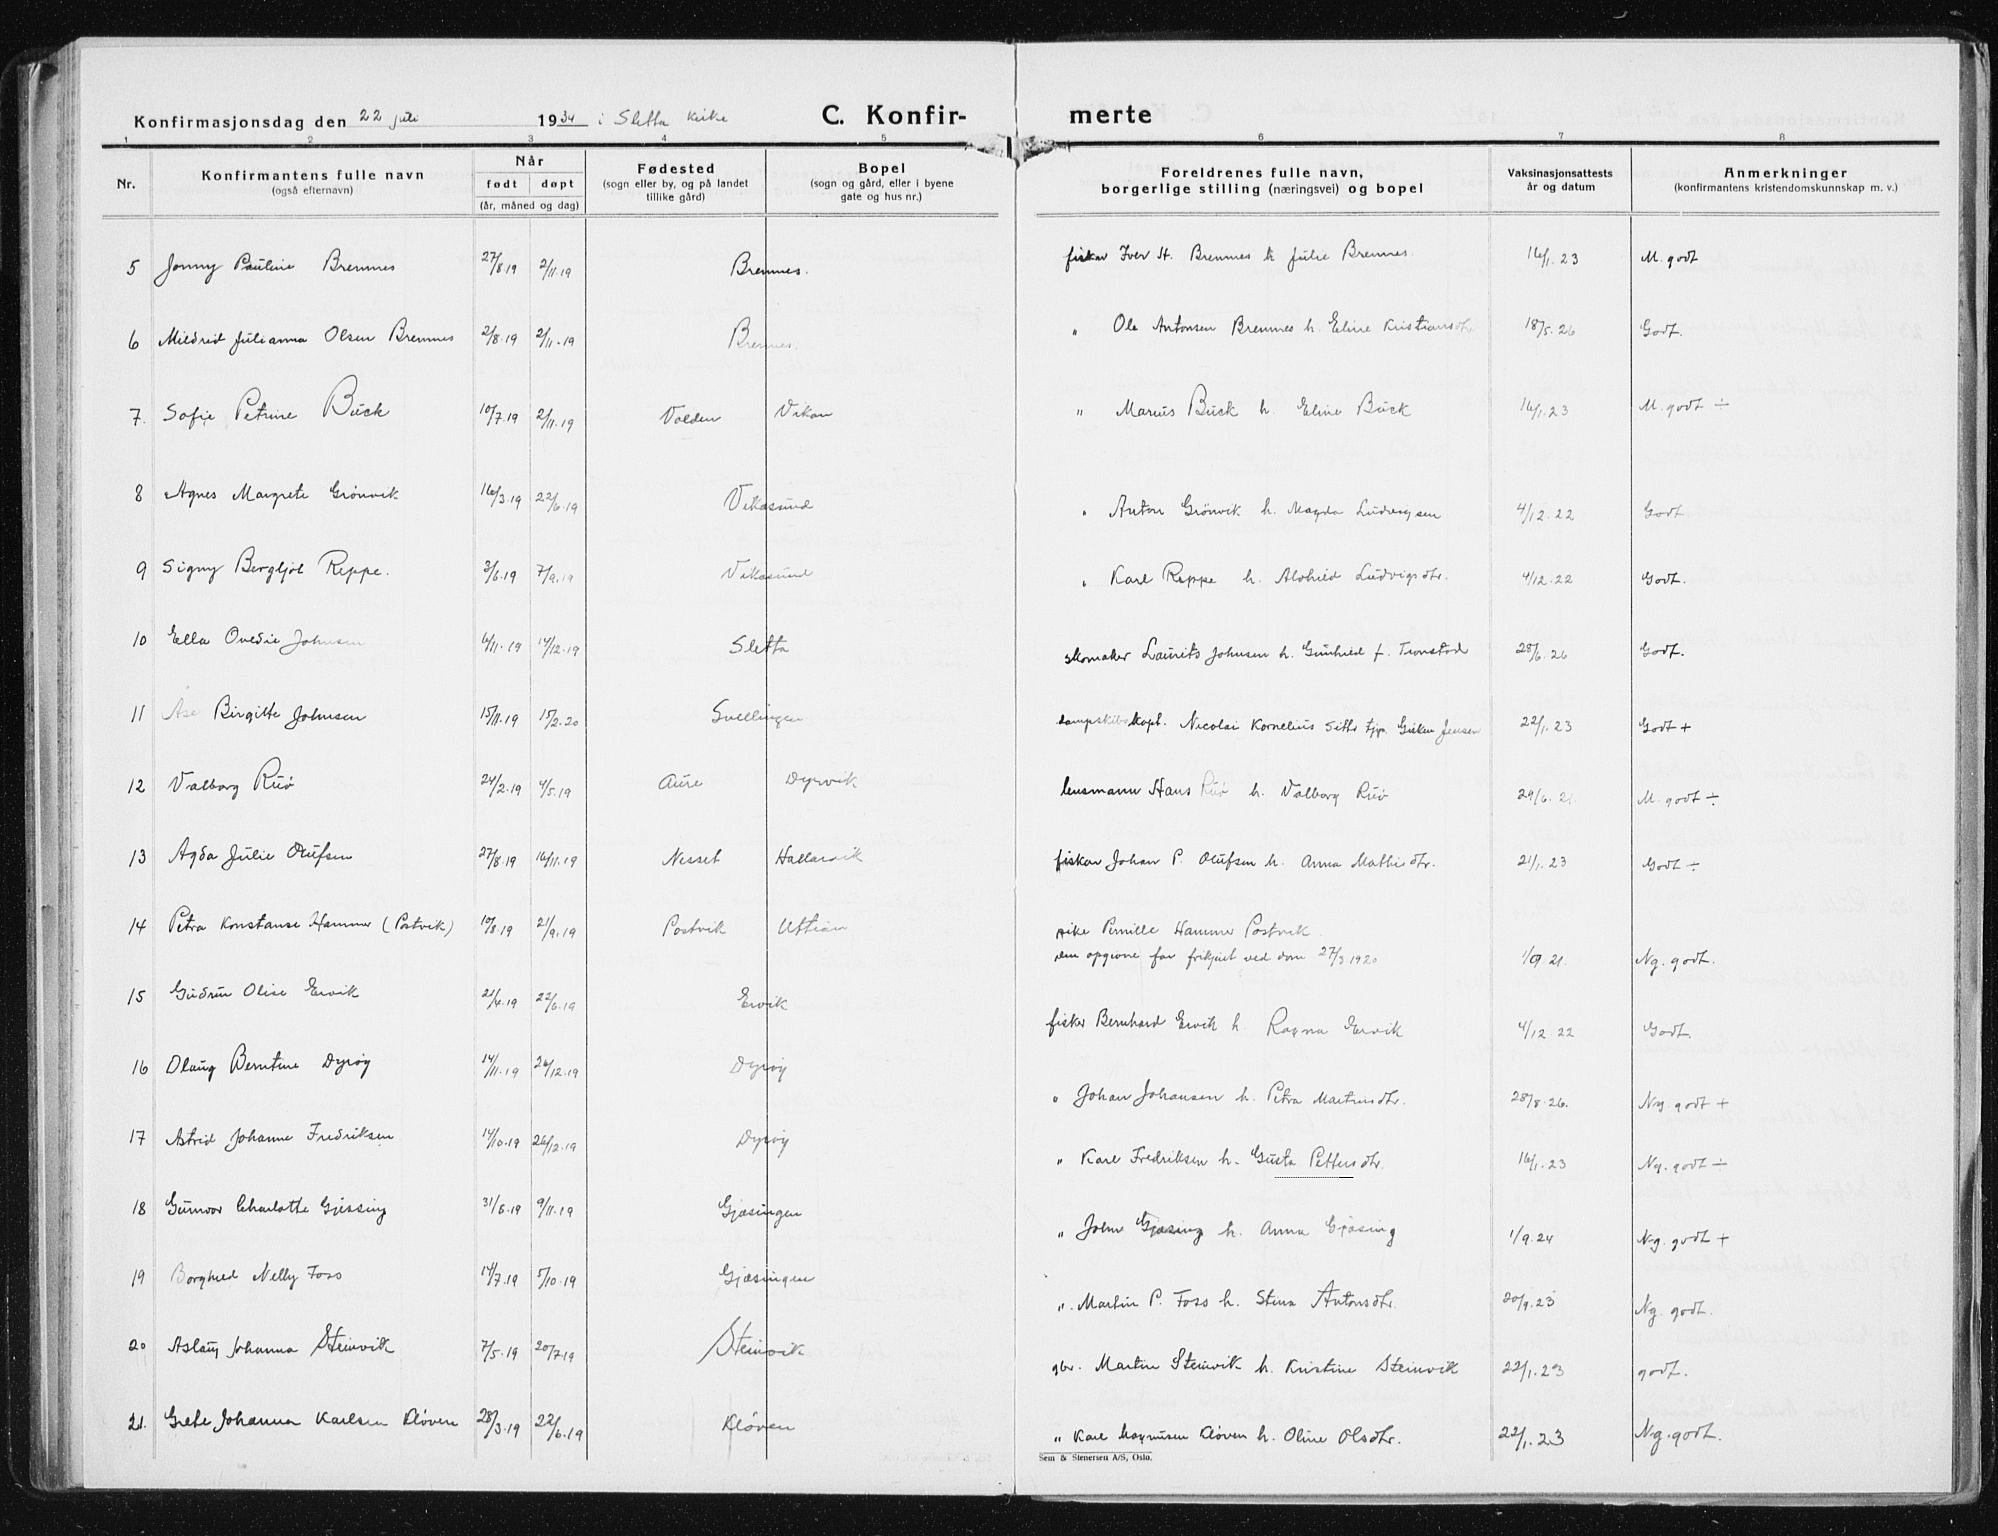 Konfirmasjonsdag den 22 juli 1934 i Sletta kirke C. Konfir-merte
1 2 3 4 5 6 7 8
Nr. Konfirmantens fulle navn (også efternavn) Når født døpt (år, måned og dag) Fødested (sogn eller by, og på landet tillike gård) Bopel (sogn og gård, eller i byene gate og hus nr.) Foreldrenes fulle navn, borgerlige stilling (næringsvei) og bopel Vaksinasjonsattests år og datum Anmerkninger (konfirmantens kristendomskunnskap m. v.)
5 Jonny Pauline Bremnes 27/8.19 2/11.19 Bremnes. fisker Iver H. Bremnes h. Julie Bremnes. 16/1.23 M. godt
6 Mildrid Julianna Olsen Bremnes 2/8.19 2/11.19 Bremnes. " Ole Antonsen Bremnes h. Eline Kristiansdtr. 18/5.26 Godt.
7. Sofie Petrine Buck 10/7.19 2/11.19 Valden Vikan " Marius Buck h. Eline Buck 16/1.23 M. godt ÷
8 Agnes Margrete Grønvik 16/3.19 22/6.19 Vikasund " Anton Grønvik h. Magda Ludvigsen 4/12.22 Godt
9 Signy Bergljot Reppe. 3/6.19 7/9.19 Vikasund " Karl Reppe h. Alvhild Ludvigsdtr. 4/12.22 Godt.
10 Ella Ovedie Johnsen 6/11.19 14/12.19 Sletta skomaker Laurits Johnsen h. Gunhild f. Tronstad 28/6.26 Godt.
11 Åse Birgitte Johnsen 15/11.19 15/2.20 Svellingen dampskibskapt. Nicolai Kornelius Sitter Giskea Jensen 22/1.23 Godt +
12 Valborg Ruø 24/2.19 4/5.19 Aure Dyrvik lensmann Hans Ruø h. Valborg Ruø 29/6.21 M. godt ÷
13 Agda Julie Olufsen 27/8.19 16/11.19 Nesset Hallarvik fisker Johan P. Olufsen h. Anna Mathisdtr. 21/1.23 Godt ÷
14 Petra Konstanse Hammer (Postvik) 10/8.19 21/9.19 Postvik Uttian pike Pernille Hammer Postvik
den opgivne far frikjent ved dom 27/3 1920 1/9 21. Ng. godt.
15 Gudrun Olise Ervik 21/4.19 22/6.19 Ervik fisker Bernhard Ervik h. Ragna Ervik 4/12.22 Godt.
16 Olaug Berntine Dyrøy 14/11.19 26/12.19 Dyrøy " Johan Johansen h. Petra Martinsdtr. 28/8.26. Ng. godt +
17 Astrid Johanne Fredriksen 14/10.19 26/12.19 Dyrøy " Karl Fredriksen h. Gusta Pettersdtr. 16/1.23 Ng. godt ÷
18 Gunvor Charlotte Gjessing 31/6.19 9/11.19 Gjæsingen " John Gjæsing h. Anna Gjæsing 1/9.24 Ng. godt +
19 Borghild Nelly Foss 14/7.19 5/10.19 Gjæsingen ". Martin P. Foss h. Stina Antonsdtr. 20/9.23 Ng. godt.
20 Aslaug Johanna Steinvik 7/5.19 20/7.19 Steinvik gbr. Martin Steinvik h. Kristine Steinvik 22/1.23 godt.
21. Grete Johanna Karlsen Kløven 28/3.19 22/6.19 Kløven " Karl Magnusen Kløven h. Oline Olsdtr. 22/1.23 Ng. godt.
Sem & Stenersen A/S, Oslo.